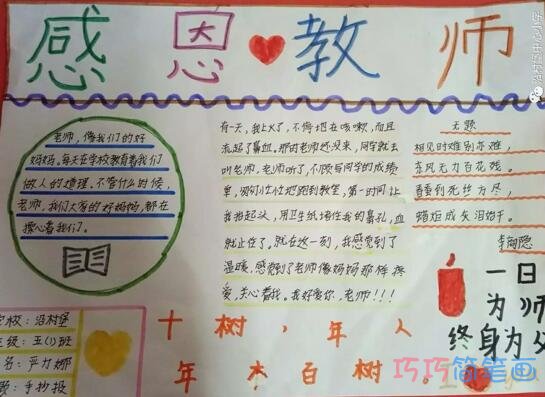 感恩教师
老师，像我们的好
妈妈，每天在学校教育着我们
做人的道理。不管什么时候，
老师，我们大家的好妈妈，都在
操心着我们。
有一天，我上火了，不停地在咳嗽，而且
流起了鼻血。那时老师还没来，同学就去
叫老师，老师听了，不顾写同学的成绩
单，匆忙忙地跑到教室，第一时间让
我抱起头，用卫生纸堵住我的鼻孔，血
就止住了。就在这一刻，我感觉到了
温暖，感觉到了老师像妈妈那样
爱，关心着我。我好爱你，老师！！！
无题
相见时难别亦难，
东风无力百花残。
春蚕到死丝方尽，
蜡炬成灰泪
李商隐
学校：沿村堡
年级：五(1)班
名：严打娜
题：手抄报
十树，年人
年木百树。
一日
为师
终身为父
巧巧简笔画